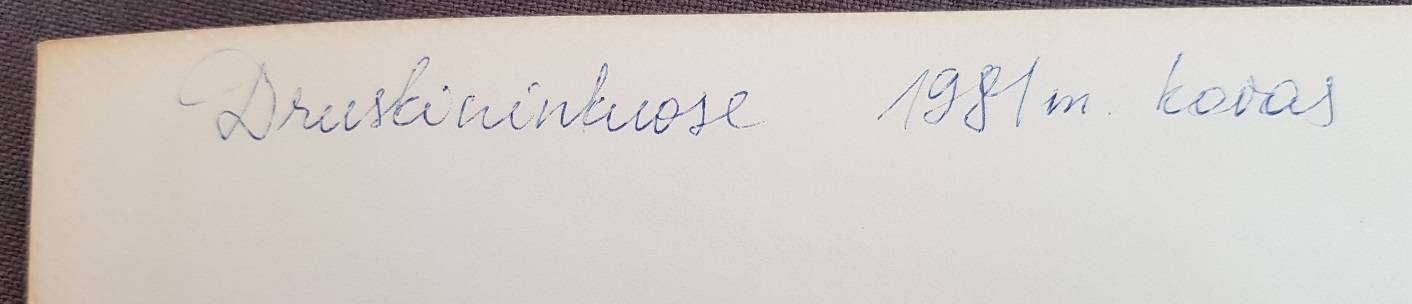 Druskininkuose 1981 m. kovas